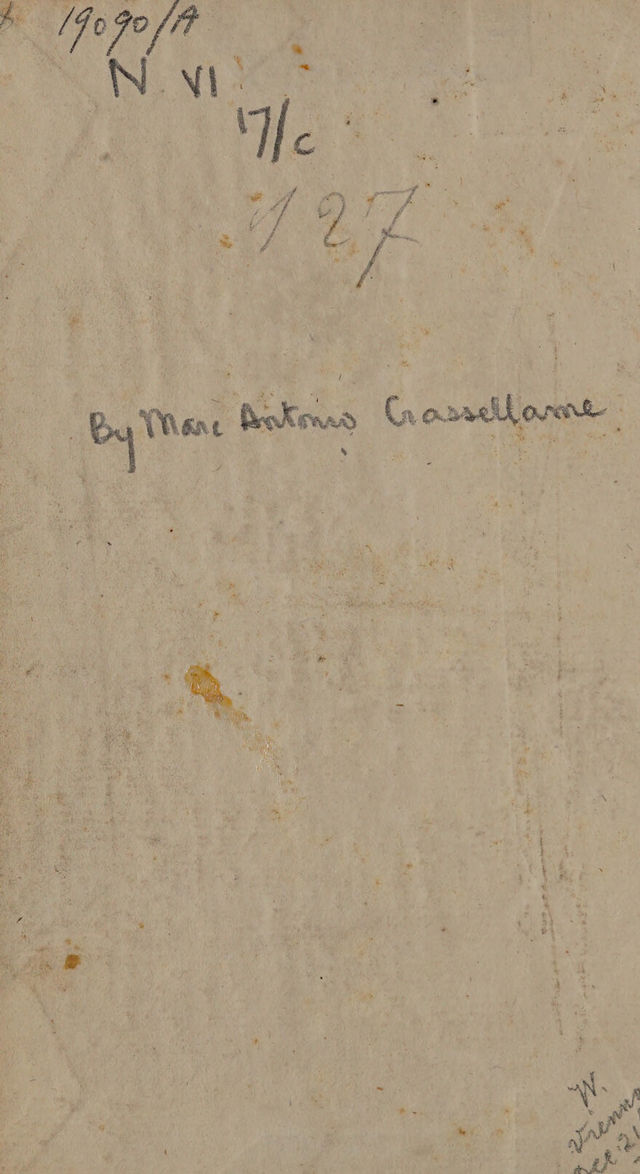 19090/A
N VI
17/c
127
By Marc Antonio Crassellame
W.
Vienna